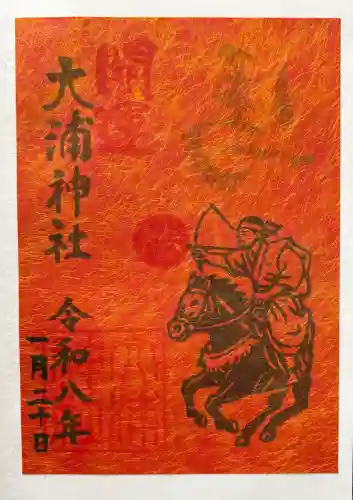 開運
大浦神社
令和八年
一月二十日